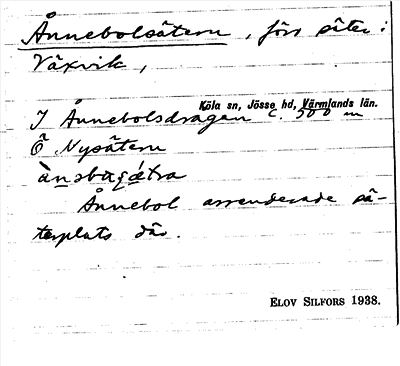 Ånnebolsätern, förr säter i
Växvik,
Köla sn, Jösse hd, Värmlands län.
I Ånnebolsdragen c. 500 m
Ö Nysätern
Ånnebol arrenderade sä-
terplats där.
ELOV SILFORS 1938.